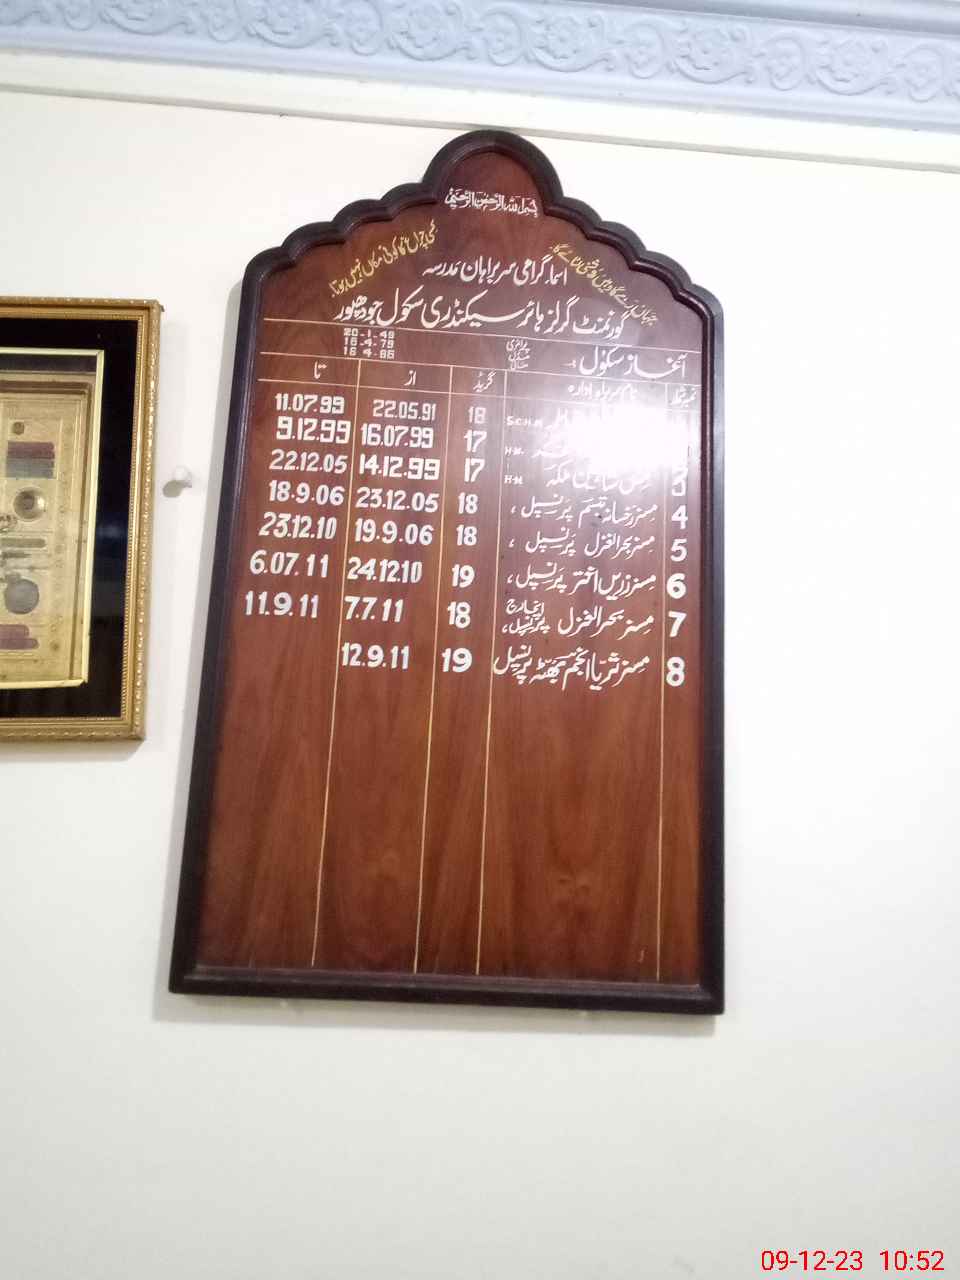 بسم اللہ الرحمن الرحیم
جہاں رہے گا وہیں روشنی لٹائے گا
کسی چراغ کا کوئی مکاں نہیں ہوتا
اسماء گرامی سربراہان مدرسہ
گورنمنٹ گرلز ہائر سیکنڈری سکول جودھپور
آغاز سکول :-
پرائمری 20-1-49
مڈل 15-4-79
ہائی 15-4-86
نمبر شمار نام سربراہ ادارہ گریڈ از تا
S.C.H.M 18 22.05.91 11.07.99
H-M. 17 16.07.99 9.12.99
3 H-M 17 14.12.99 22.12.05
4 مسز رخسانہ تبسم پرنسپل، 18 23.12.05 18.9.06
5 مسز بحرالغزل پرنسپل، 18 19.9.06 23.12.10
6 مسز زریں اختر پرنسپل، 19 24.12.10 6.07.11
7 مسز بحرالغزل انچارج پرنسپل، 18 7.7.11 11.9.11
8 مسز ثریا انجم بھٹہ پرنسپل 19 12.9.11
09-12-23 10:52